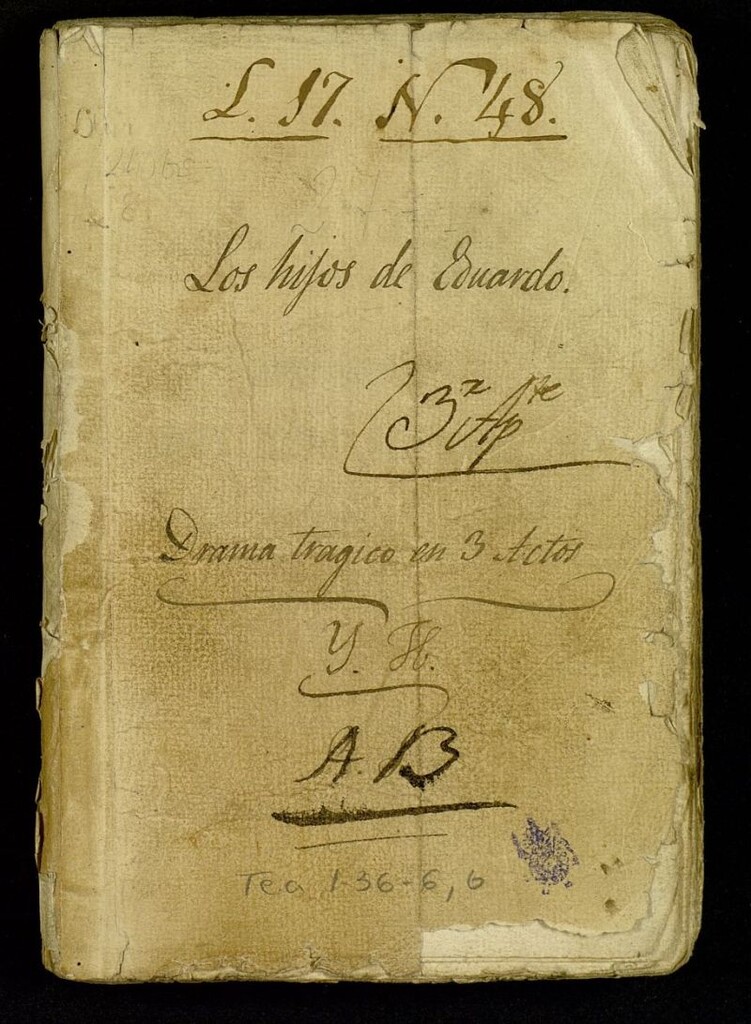 L. 17. N. 48.
Los hijos de Eduardo.
3ᵃ Apᵗᵉ
Drama tragico en 3 Actos
Y. H.
A. B
Tea 1-36-6, 6